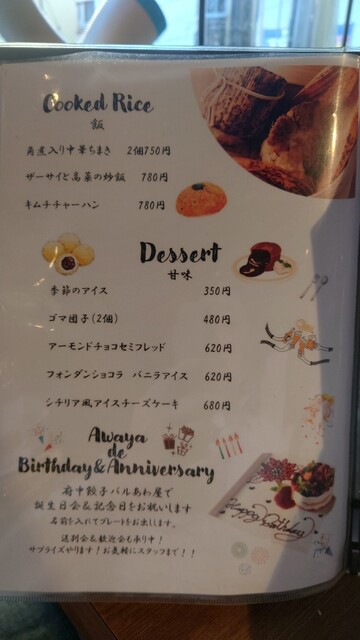 Cooked Rice
飯
角煮入り中華ちまき 2個750円
ザーサイと高菜の炒飯 780円
キムチチャーハン 780円
Dessert
甘味
季節のアイス 350円
ゴマ団子(2個) 480円
アーモンドチョコセミフレッド 620円
フォンダンショコラ バニラアイス 620円
シチリア風アイスチーズケーキ 680円
Awaya
de
Birthday&Anniversary
府中餃子バルあわ屋で
誕生日会&記念日をお祝いします
名前を入れてプレートをお出しします。
送別会&歓迎会も承り中!
サプライズやります!お気軽にスタッフまで!!
Happy Birthday